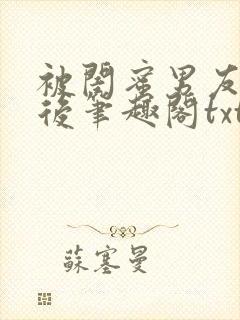 被閤蜜男友
後筆趣閣txt
蘇塞曼